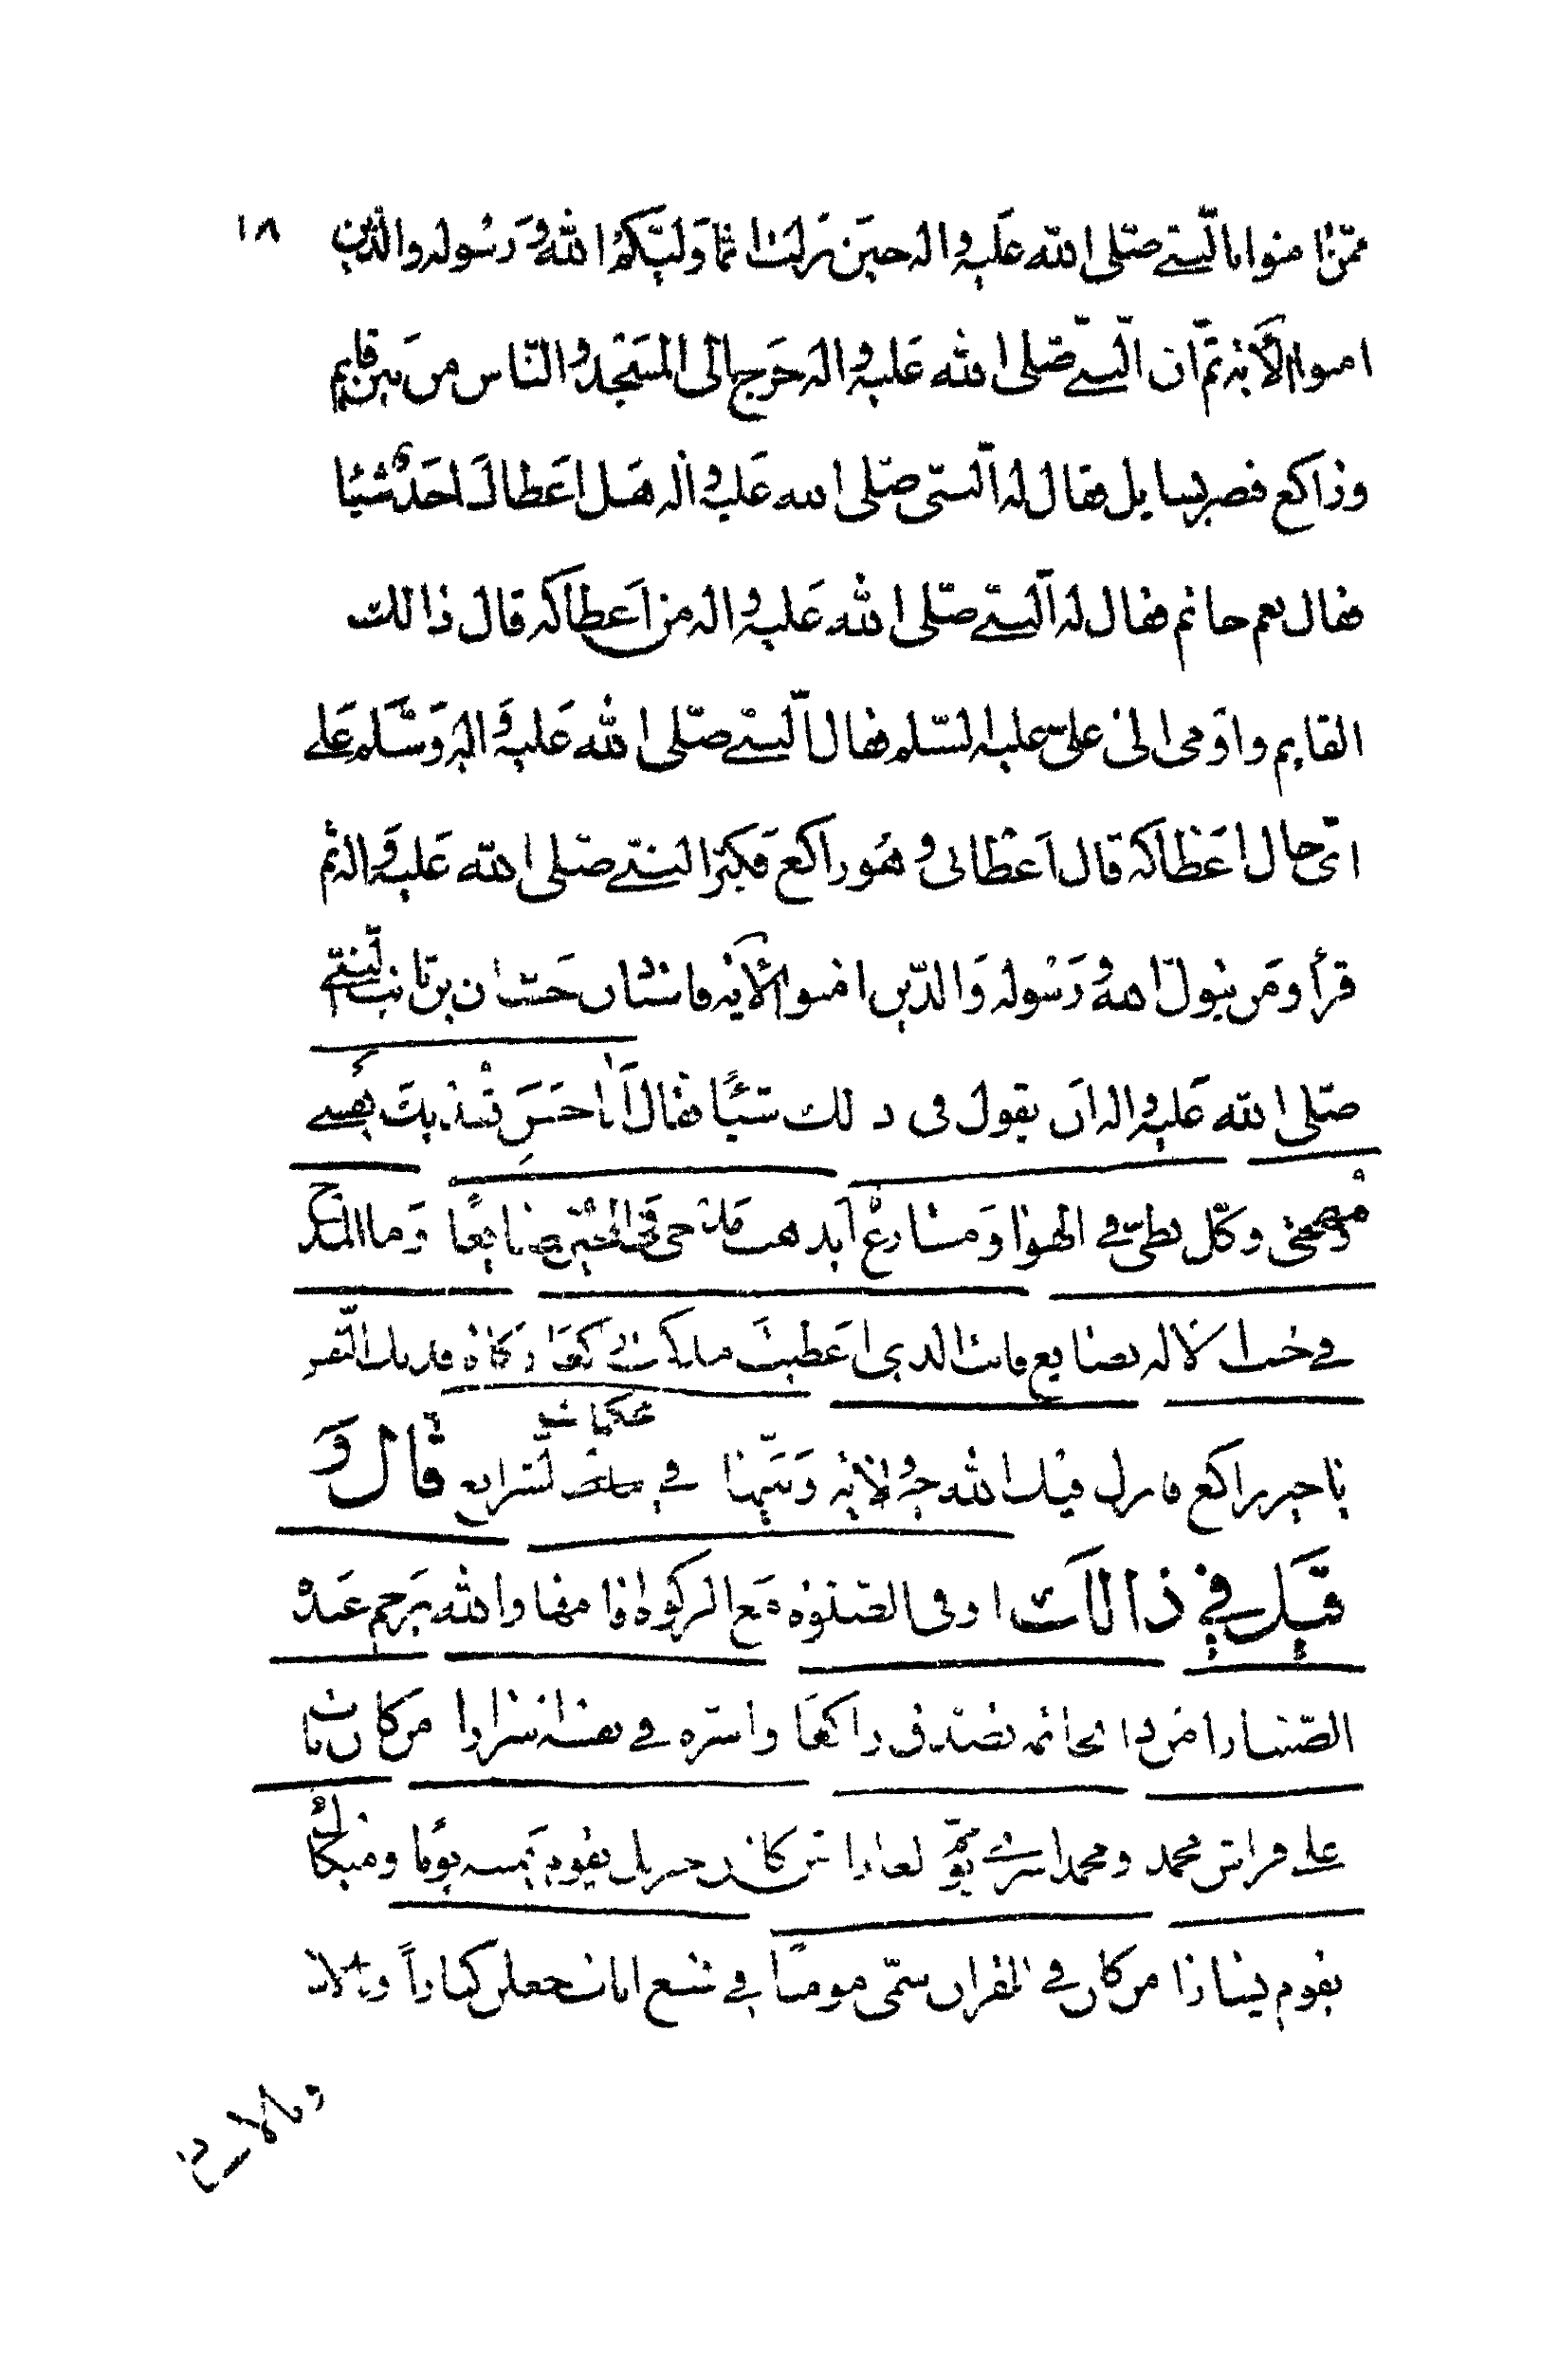 ١٨
ممن امنوا بالنبي صلى الله عليه واله حين نزلت انما وليكم الله ورسوله والذين
امنوا الآية ثم ان النبي صلى الله عليه واله خرج الى المسجد والناس من بين قايم
وراكع فبصر بسايل فقال له النبي صلى الله عليه واله هل اعطاك احد شيئا
فقال نعم خاتم فقال له النبي صلى الله عليه واله من اعطاكه قال ذالك
القايم واومى الى علي عليه السلم فقال النبي صلى الله عليه واله وسلم على
اي حال اعطاكه قال اعطاني وهو راكع فكبر النبي صلى الله عليه واله ثم
قرأ ومن يتول الله ورسوله والذين امنوا الآية فانشأ حسان بن ثابت النبي
صلى الله عليه واله ان يقول في ذلك شيئا فقال ابا حسن تفديك نفسي
ومهجتي وكل بطي في الهوا ومسارع ايذهب مدحي في المحبين ضايعا وما المدح
في جنب الاله بضايع فانت الذي اعطيت مذ كنت راكعا زكاة فدتك النفس
يا خير راكع فانزل فيك الله خير ولاية وبينها في محكمات الشرايع قال و
قيل في ذالك اوفى الصلوة مع الزكوة اقامها والله يرحم عبده
الصبارا من ذا بخاتمه تصدق راكعا واسره في نفسه اسرارا من كان بات
على فراش محمد ومحمد اسرى يؤم الغارا من كان جبريل يقوم يمينه يوما وميكال
يقوم يسارا من كان في القران سمي مومنا في تسع ايات جعلن كبارا